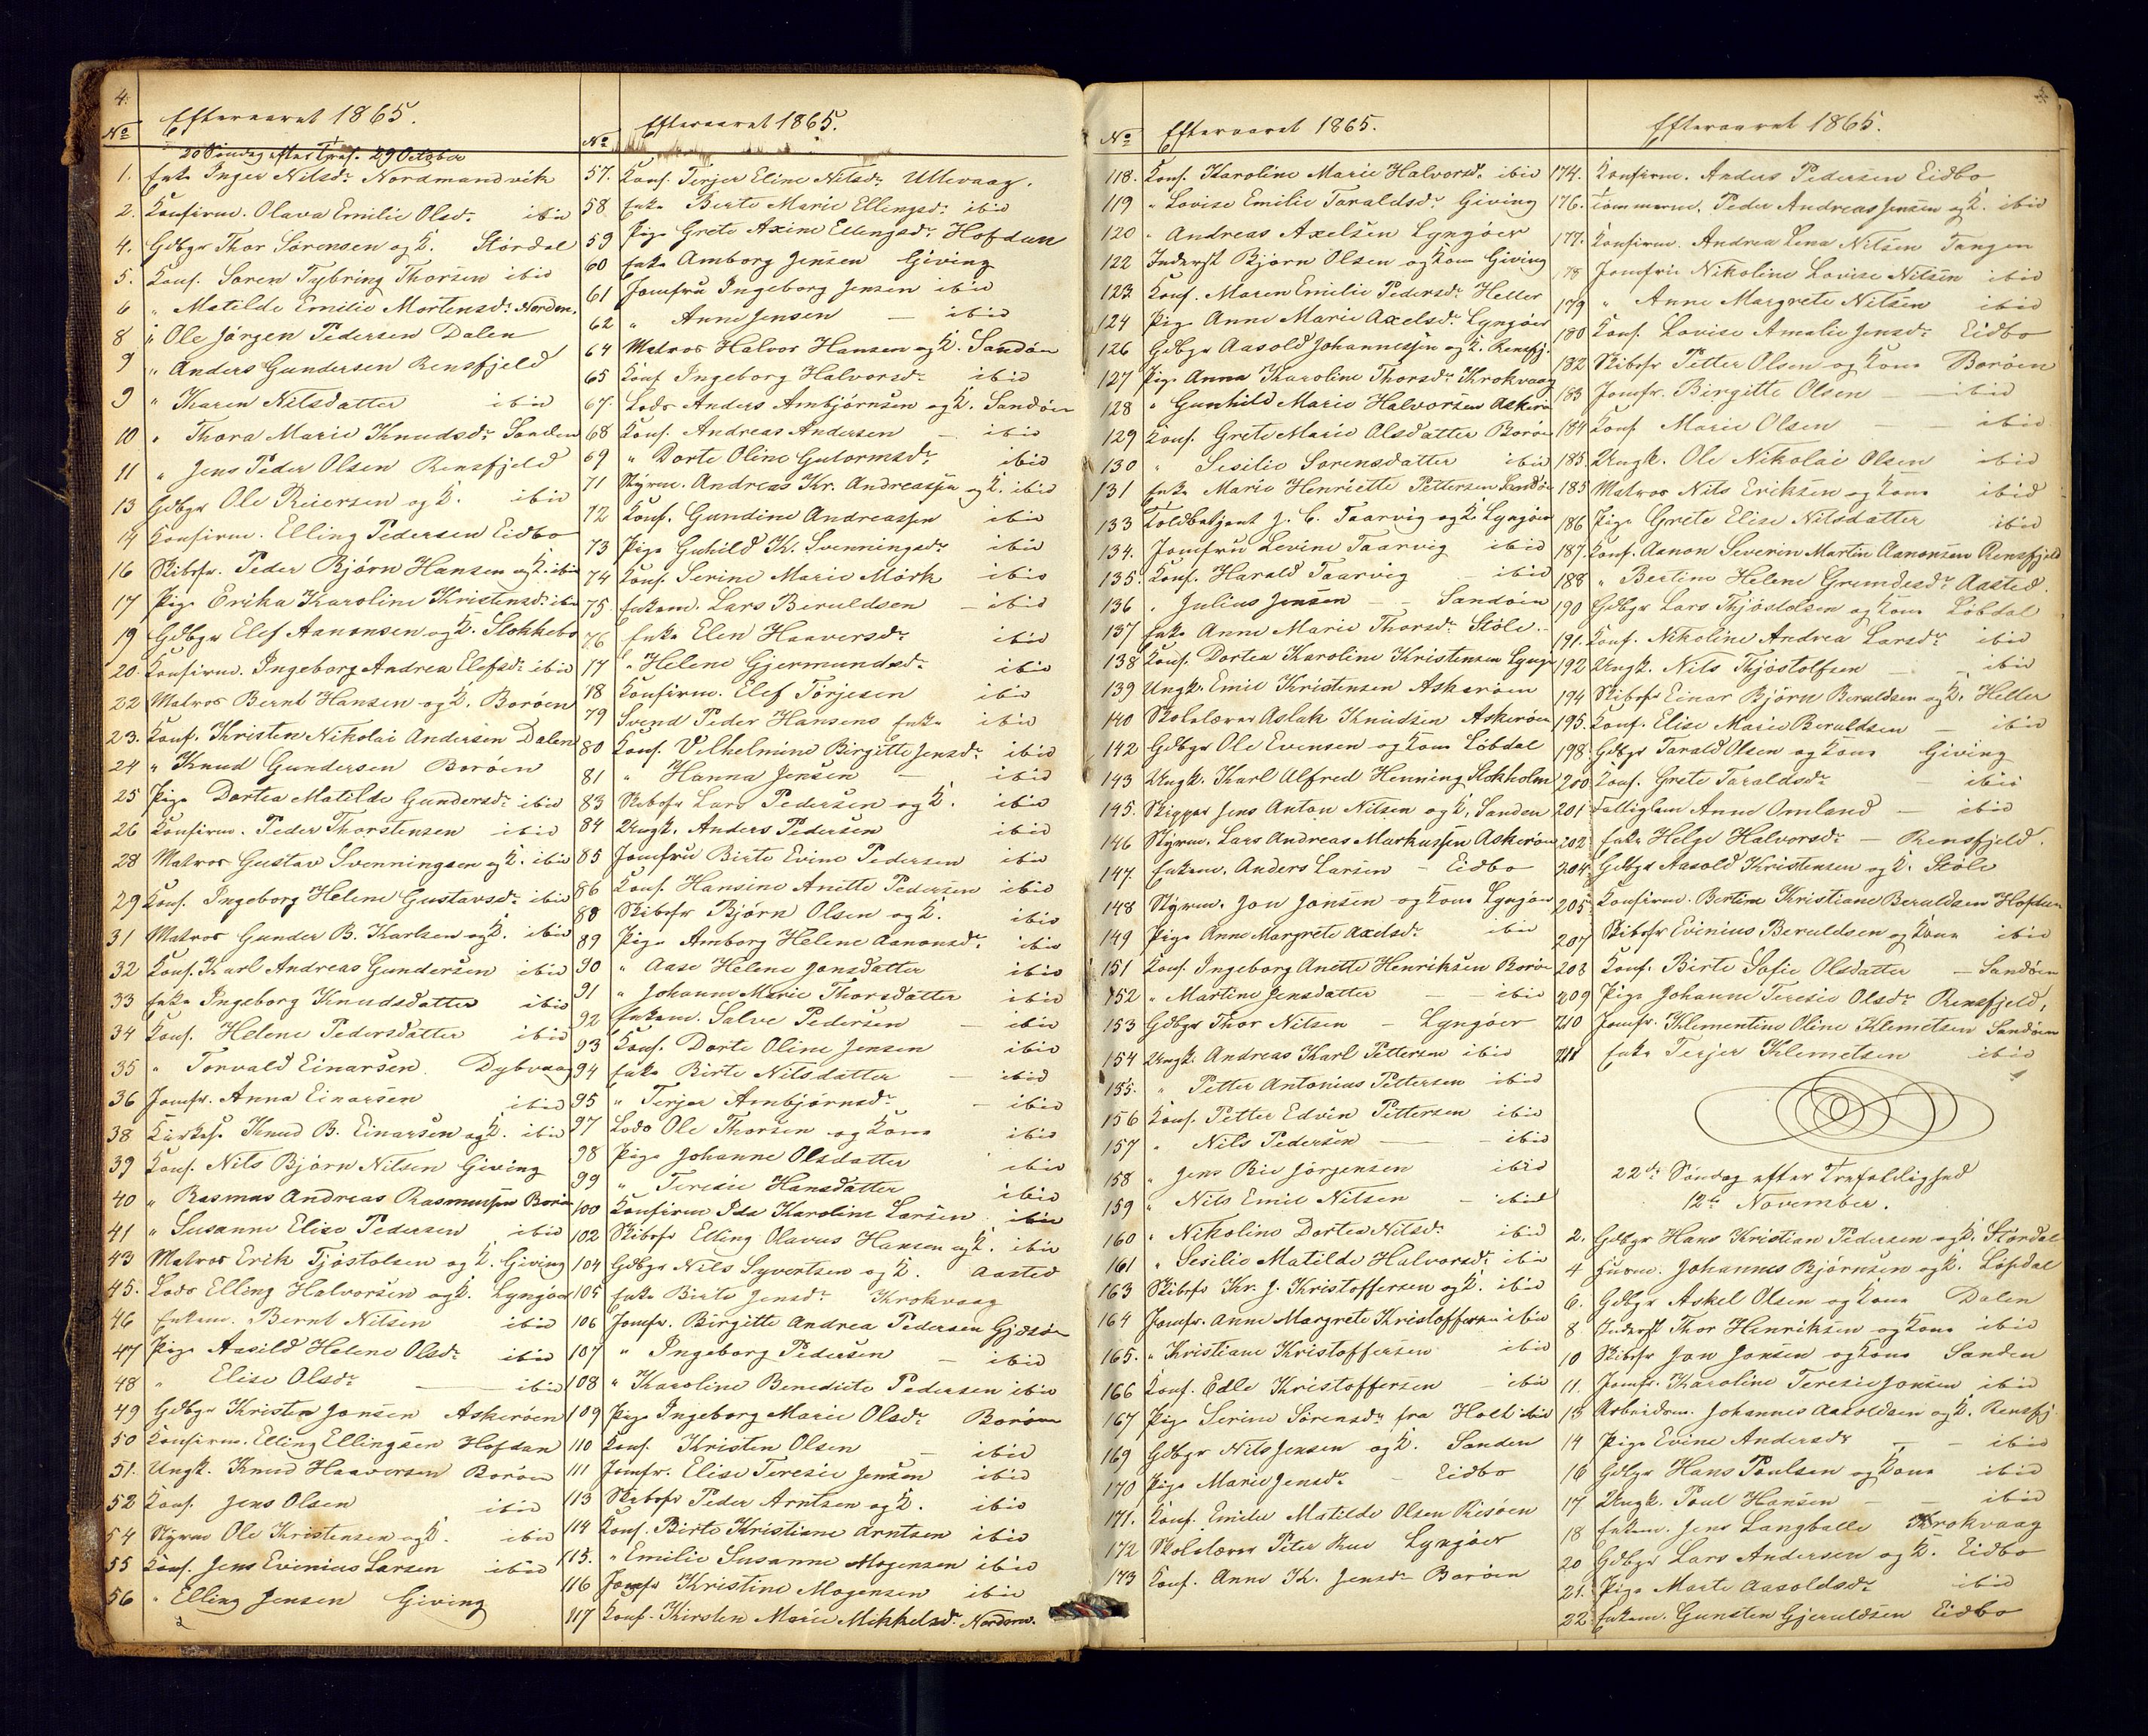 4.
No Efteraaret 1865.
20 Söndag efter Tref. 29 October
1. Enke Inger Nilsdr Nordmandvik
2. Konfirm. Olava Emilie Olsd. ibid
4. Gdbgr Thor Sørensen og K. Stördal
5. Konf. Søren Tybring Thorsen ibid
6 " Matilde Emilie Mortensdr Nordm.
8 " Ole Jörgen Pedersen Dalen
9 " Anders Gundersen Rensfjeld
9 " Karen Nilsdatter ibid
10 " Thora Marie Knudsdr Sanden
11 " Jens Peder Olsen Rensfjeld
13 Gdbgr Ole Reiersen og K. ibid
14 Konfirm. Elling Pedersen Eidbo
16 Skibsfr. Peder Björn Hansen og K. ibid
17 Pige Erika Karoline Kristensdr ibid
19 Gdbgr Elef Aanonsen og K. Stokkebo
20. Konfirm. Ingeborg Andrea Elefsdr ibid
22 Matros Bernt Hansen og K. Boröen
23. Konf. Kristen Nikolai Andersen Dalen
24 " Knud Gundersen Boröen
25 Pige Dortea Matilde Gundersdr ibid
26 Konfirm. Peder Thorstensen ibid
28 Matros Gustav Svenningsen og K. ibid
29 Konf. Ingeborg Helene Gustavsdr ibid
31 Matros Gunder B. Karlsen og K. ibid
32 Konf. Karl Andreas Gundersen ibid
33 Enke Ingeborg Knudsdatter ibid
34 Konf. Helene Pedersdatter ibid
35 " Torvald Einarsen. Dybvaag
36 Jomfr. Anna Einarsen ibid
38 Kirkes. Knud B. Einarsen og K. ibid
39 Konf. Nils Björn Nilsen Giving
40 " Rasmus Andreas Rasmussen Borøen
41 " Susanne Elise Pedersen ibid
43 Matros Erik Tjöstolsen og K. Giving
45. Lods Elling Halvorsen og K. Lyngöer
46 Enkem. Bernt Nilsen ibid
47 Pige Aasild Helene Olsdr ibid
48 " Elise Olsdr ibid
49 Gdbgr Kristen Jonsen Askerøen
50 Konfirm. Elling Ellingsen Hofdan
51. Ungk. Knud Haaversen Borøen
52 Konf. Jens Olsen ibid
54 Styrm Ole Kristensen og K. ibid
55 Konf. Jens Evinius Larsen ibid
56 " Elling Jensen Giving
No Efteraaret 1865.
57. Konf. Terjer Eline Nilsdr Ullevaag.
58 Enke Berte Marie Ellingsdr ibid
59 Pige Grete Axine Ellingsdr Hofdan
60 Enke Amborg Jensen Giving
61 Jomfru Ingeborg Jensen ibid
62 " Anne Jensen — ibid
64 Matros Halvor Hansen og K. Sandöen
65 Konf Ingeborg Halvorsdr ibid
67. Lods Anders Ambjörnsen og K. Sandöen
68 Konf. Andreas Andersen — ibid
69 " Dorte Oline Gutormsdr ibid
71 Styrm. Andreas Kr. Andreassen og K. ibid
72 Konf. Gundine Andreassen ibid
73 Pige Guhild K. Svenningsdr ibid
74 Konf. Serine Marie Mörk ibid
75. Enkem. Lars Beruldsen — ibid
76 Enke Elen Haaversdr ibid
17 " Helene Gjermundsdr ibid
78 Konfirm. Elef Torjesen ibid
79 Svend Peder Hansens Enke ibid
80 Konf. Vilhelmine Birgitte Jensdr ibid
81 " Hanna Jensen — ibid
83 Skibsfr Lars Pedersen og K. ibid
84 Ungk. Anders Pedersen ibid
85 Jomfru Birte Evine Pedersen ibid
86 Konf. Hansine Anette Pedersen ibid
88 Skibsfr Björn Olsen og K. ibid
89 Pige Amborg Helene Aanonsdr ibid
90 " Aase Helene Jonsdatter ibid
91 " Johanne Marie Thorsdatter ibid
92 Enkem. Salve Pedersen — ibid
93 Konf. Dorte Oline Jensen ibid
94 Enke Birte Nilsdatter — ibid
95 " Terjer Ambjörnsdr — ibid
97 Lods Ole Thorsen og Kone ibid
98 Pige Johanne Olsdatter ibid
99 " Teresie Hansdatter ibid
100 Konfirm Ida Karoline Larsen ibid
102 Skibsfr Elling Olavus Hansen og K. ibid
104 Gdbgr Nils Syvertsen og K. Aasted
105 Enke Birte Jensdr Krokvaag
106 Jomfr. Birgitte Andrea Pedersen Gjæsøen
107 " Ingeborg Pedersen — ibid
108 " Karoline Benedicte Pedersen ibid
109 Pige Ingeborg Marie Olsdr Borøen
110 Konf. Kristen Olsen — ibid
111 Jomfr. Elise Teresie Jensen ibid
113 Skibsfr Peder Arntsen og K. ibid
114 Konf. Birte Kristiane Arntsen ibid
115. " Emilie Susanne Mogensen ibid
116 Jomfr Kristine Mogensen ibid
117 Konf. Kirsten Marie Mikkelsdr Nordm.
5.
No Efteraaret 1865.
118. Konf. Karoline Marie Halvorsd. ibid
119 " Lovise Emilie Taraldsdr Giving
120 " Andreas Axelsen Lyngöer
122 Inderst Björn Olsen og Kone Giving
123. Konf. Maren Emilie Pedersdr Heller
124 Pige Anne Marie Axelsdr Lyngöer
126 Gdbgr Aasold Johannessen og K. Rensfj.
127 Pige Anna Karoline Thorsdr Krokvaag
128 " Gunhild Marie Halvorsen Askerø
129 Konf. Grete Marie Olsdatter Borøen
130 " Sesilie Sørensdatter ibid
131 Enke Marie Henriette Pettersen Sandöen
133 Toldbetjent J. C. Taarvig og K. Lyngöer
134. Jomfru Levine Taarvig ibid
135. Konf. Harald Taarvig — ibid
136 " Julius Jensen — Sandöen
137 Enke Anne Marie Thorsdr Stöle
138 Konf. Dortea Karoline Kristensen Lyngø
139 Ungk. Emil Kristensen Askerøen
140 Skolelærer Aslak Knudsen Askerøen
142 Gdbgr Ole Evensen og Kone Löbdal
143 Ungk. Karl Alfred Henning Stokholm
145. Skipper Jens Anton Nilsen og K. Sanden
146 Styrm. Lars Andreas Markussen Askerøen
147. Enkem. Anders Larsen — Eidbo
148 Styrm. Jon Jonsen og Kone Lyngöer
149 Pige Anne Margrete Axelsdr ibid
151 Konf. Ingeborg Anette Henriksen Borøe
152 " Martine Jensdatter — ibid
153 Gdbgr Thor Nilsen — Lyngöer
154 Ungk. Andreas Karl Pettersen ibid
155. " Petter Antonius Pettersen ibid
156 Konf. Petter Edvin Pettersen ibid
157 " Nils Pedersen — ibid
158 " Jens Bie Jörgensen ibid
159 " Nils Emil Nilsen — ibid
160 " Nikoline Dortea Nilsdr ibid
161 " Sesilie Matilde Halvorsdr ibid
163 Skibsfr Kr. J. Kristoffersen og K. ibid
164 Jomfr. Anne Margrete Kristoffersen ibid
165. " Kristiane Kristoffersen ibid
166 Konf. Edle Kristoffersen — ibid
167 Pige Serine Sörensdr fra Holt ibid
169 Gdbgr Nils Jensen og K. Sanden
170 Pige Marie Jensdr — Eidbo
171. Konf. Emilie Matilde Olsen Risøen
172 Skolelærer Peter Lyngöer
173 Konf. Anne K. Jensdr Borøen
Efteraaret 1865.
174. Konfirm. Anders Pedersen Eidbo
176. Tømmerm. Peder Andreas Jensen og K. ibid
177. Konfirm. Andrea Lena Nilsen Tangen
178 Jomfru Nikoline Lovise Nilsen ibid
179 " Anne Margrete Nilsen ibid
180 Konf. Lovise Amalie Jensdr Eidbo
182 Skibsfr Petter Olsen og Kone Borøen
183 Jomfr. Birgitte Olsen — ibid
184 Konf Marie Olsen — — ibid
185. Ungk. Ole Nikolai Olsen ibid
185 Matros Nils Eriksen og Kone ibid
186 Pige Grete Elise Nilsdatter ibid
187. Konf. Aanon Severin Martin Aanonsen Rensfjeld
188 " Bertine Helene Grundesdr Aasted.
190 Gdbgr Lars Thjöstolsen og Kone Löbdal
191. Konf. Nikoline Andrea Larsdr ibid
192 Ungk. Nils Thjöstolfsen — ibid
194 Skibsfr Einar Björn Beruldsen og K. Heller
195. Konf. Elise Marie Beruldsen — ibid
198. Gdbgr Tarald Olsen og Kone Giving
200 Konf. Grete Taraldsdr — ibid
201 Fattiglem Anne Omland — ibid
202 Enke Helge Halvorsdr — Rensfjeld.
204 Gdbgr Aasold Kristensen og K. Stöle
205 Konfirm. Bertine Kristiane Beruldsen Hofdan
207 Skibsfr Evinius Beruldsen og Kone ibid
208 Konf. Birte Sofie Olsdatter — Sandöen
209 Pige Johanne Teresie Olsdr Rensfjeld,
210 Jomfr. Klementine Oline Klemetsen Sandöen
211 Enke Terjer Klemetsen ibid
22de Söndag efter Trefoldighed
12te November.
2. Gdbgr Hans Kristian Pedersen og K. Stördal
4 Huusm. Johannes Björnsen og K. Löbdal
6. Gdbgr Askel Olsen og Kone Dalen
8 Inderst Thor Henriksen og Kone ibid
10 Skibsfr Jon Jonsen og Kone Sanden
11. Jomfr. Karoline Teresie Jonsen ibid
13 Arbeidsm. Johannes Aasoldsen og K. Rensfj.
14 Pige Evine Andersdr — — ibid
16 Gdbgr Hans Poulsen og Kone ibid
17 Ungk. Poul Hansen — — ibid
18 Enkem. Jens Langballe Krokvaag
20 Gdbgr Lars Andersen og K. Eidbo
21. Pige Marte Aasoldsdr ibid
22. Enkem. Gunsten Gjeruldsen Eidbo